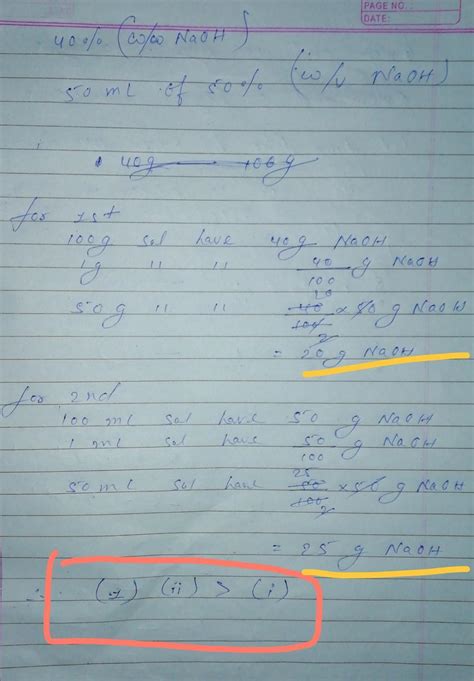 PAGE NO.:
DATE:
40% (w/w NaOH)
50 mL of 50% (w/v NaOH)
40g 100g
for 1st
100g sol have 40g NaOH
1g " " 40/100 g NaOH
50g " " 40/100 × 50 g NaOH
= 20 g NaOH
for 2nd
100 ml sol have 50 g NaOH
1 ml sol have 50/100 g NaOH
50 ml sol have 50/100 × 50 g NaOH
= 25 g NaOH
∴ (ii) > (i)